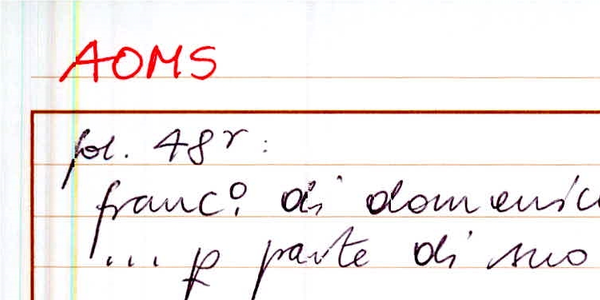 AOMS
fol. 48r:
franc.º di domenic
... p parte di suo